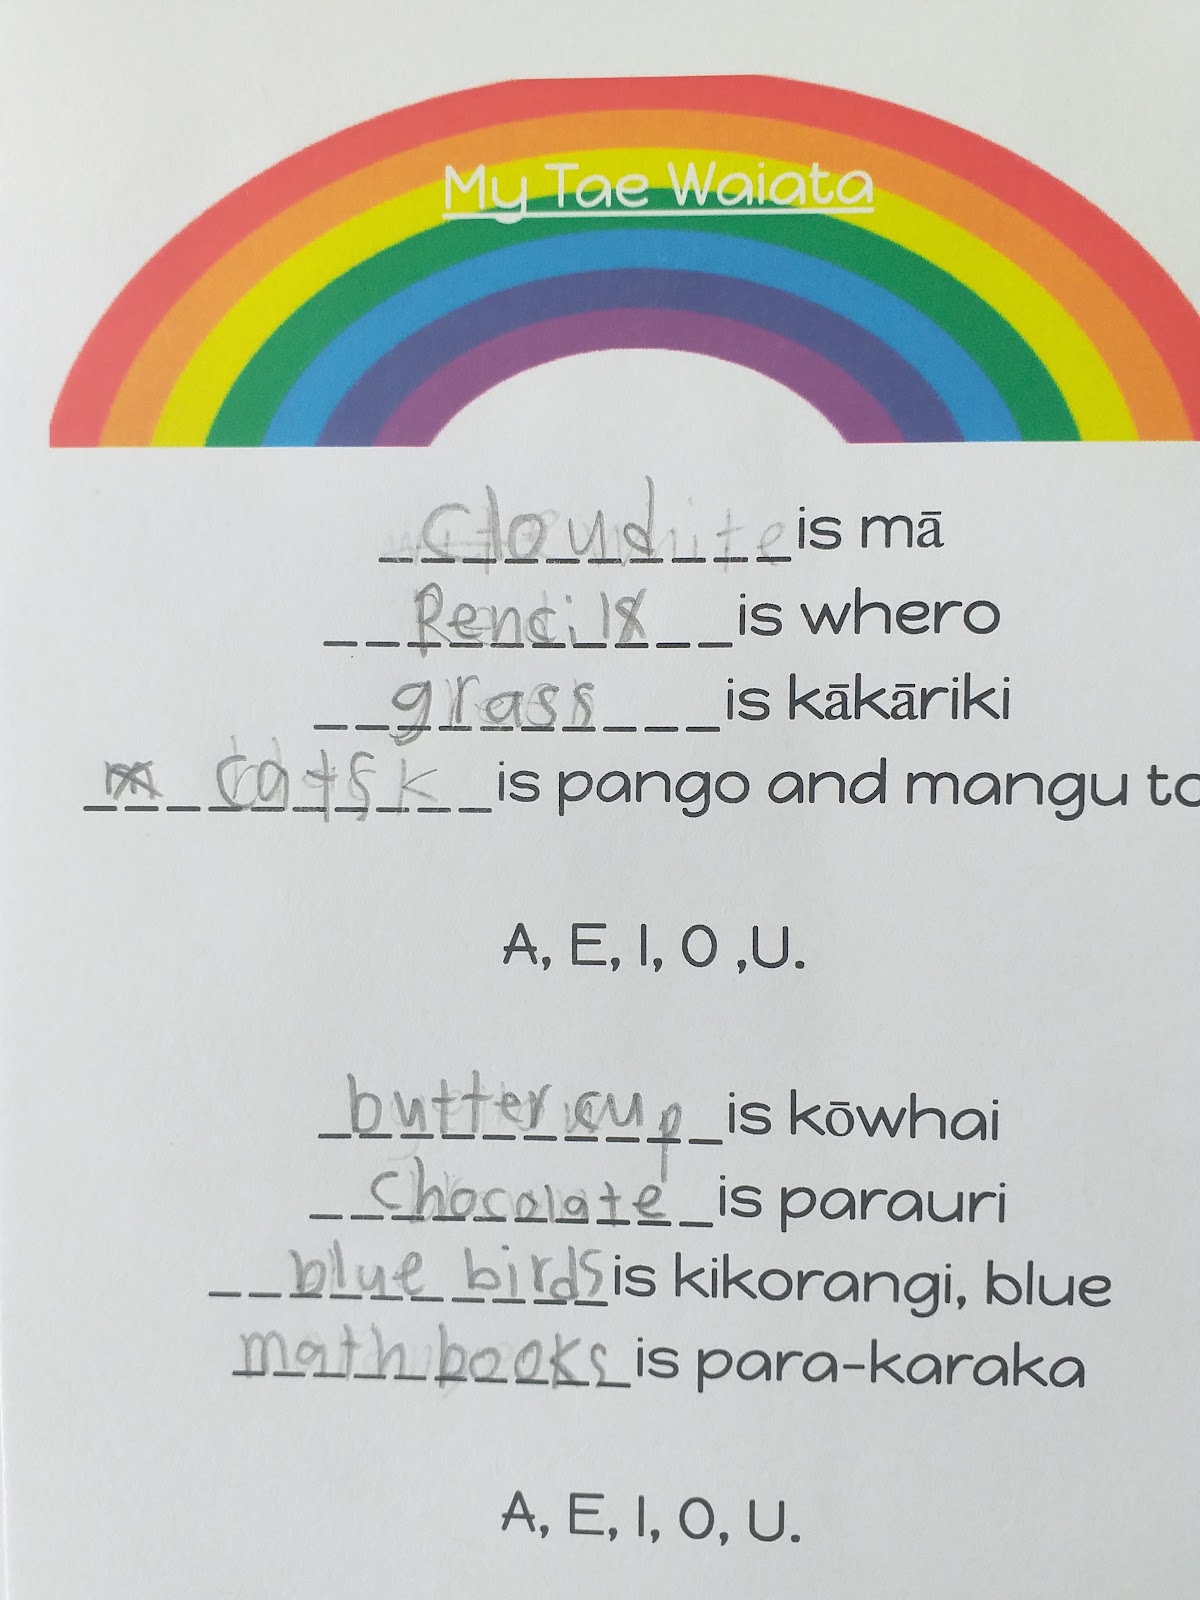 My Tae Waiata
cloud is mā
Pencils is where
grass is kākāriki
cats is pango and mangu to
A, E, I, O ,U.
butter cup is kōwhai
chocolate is parauri
blue birds is kikorangi, blue
math books is para-karaka
A, E, I, O, U.